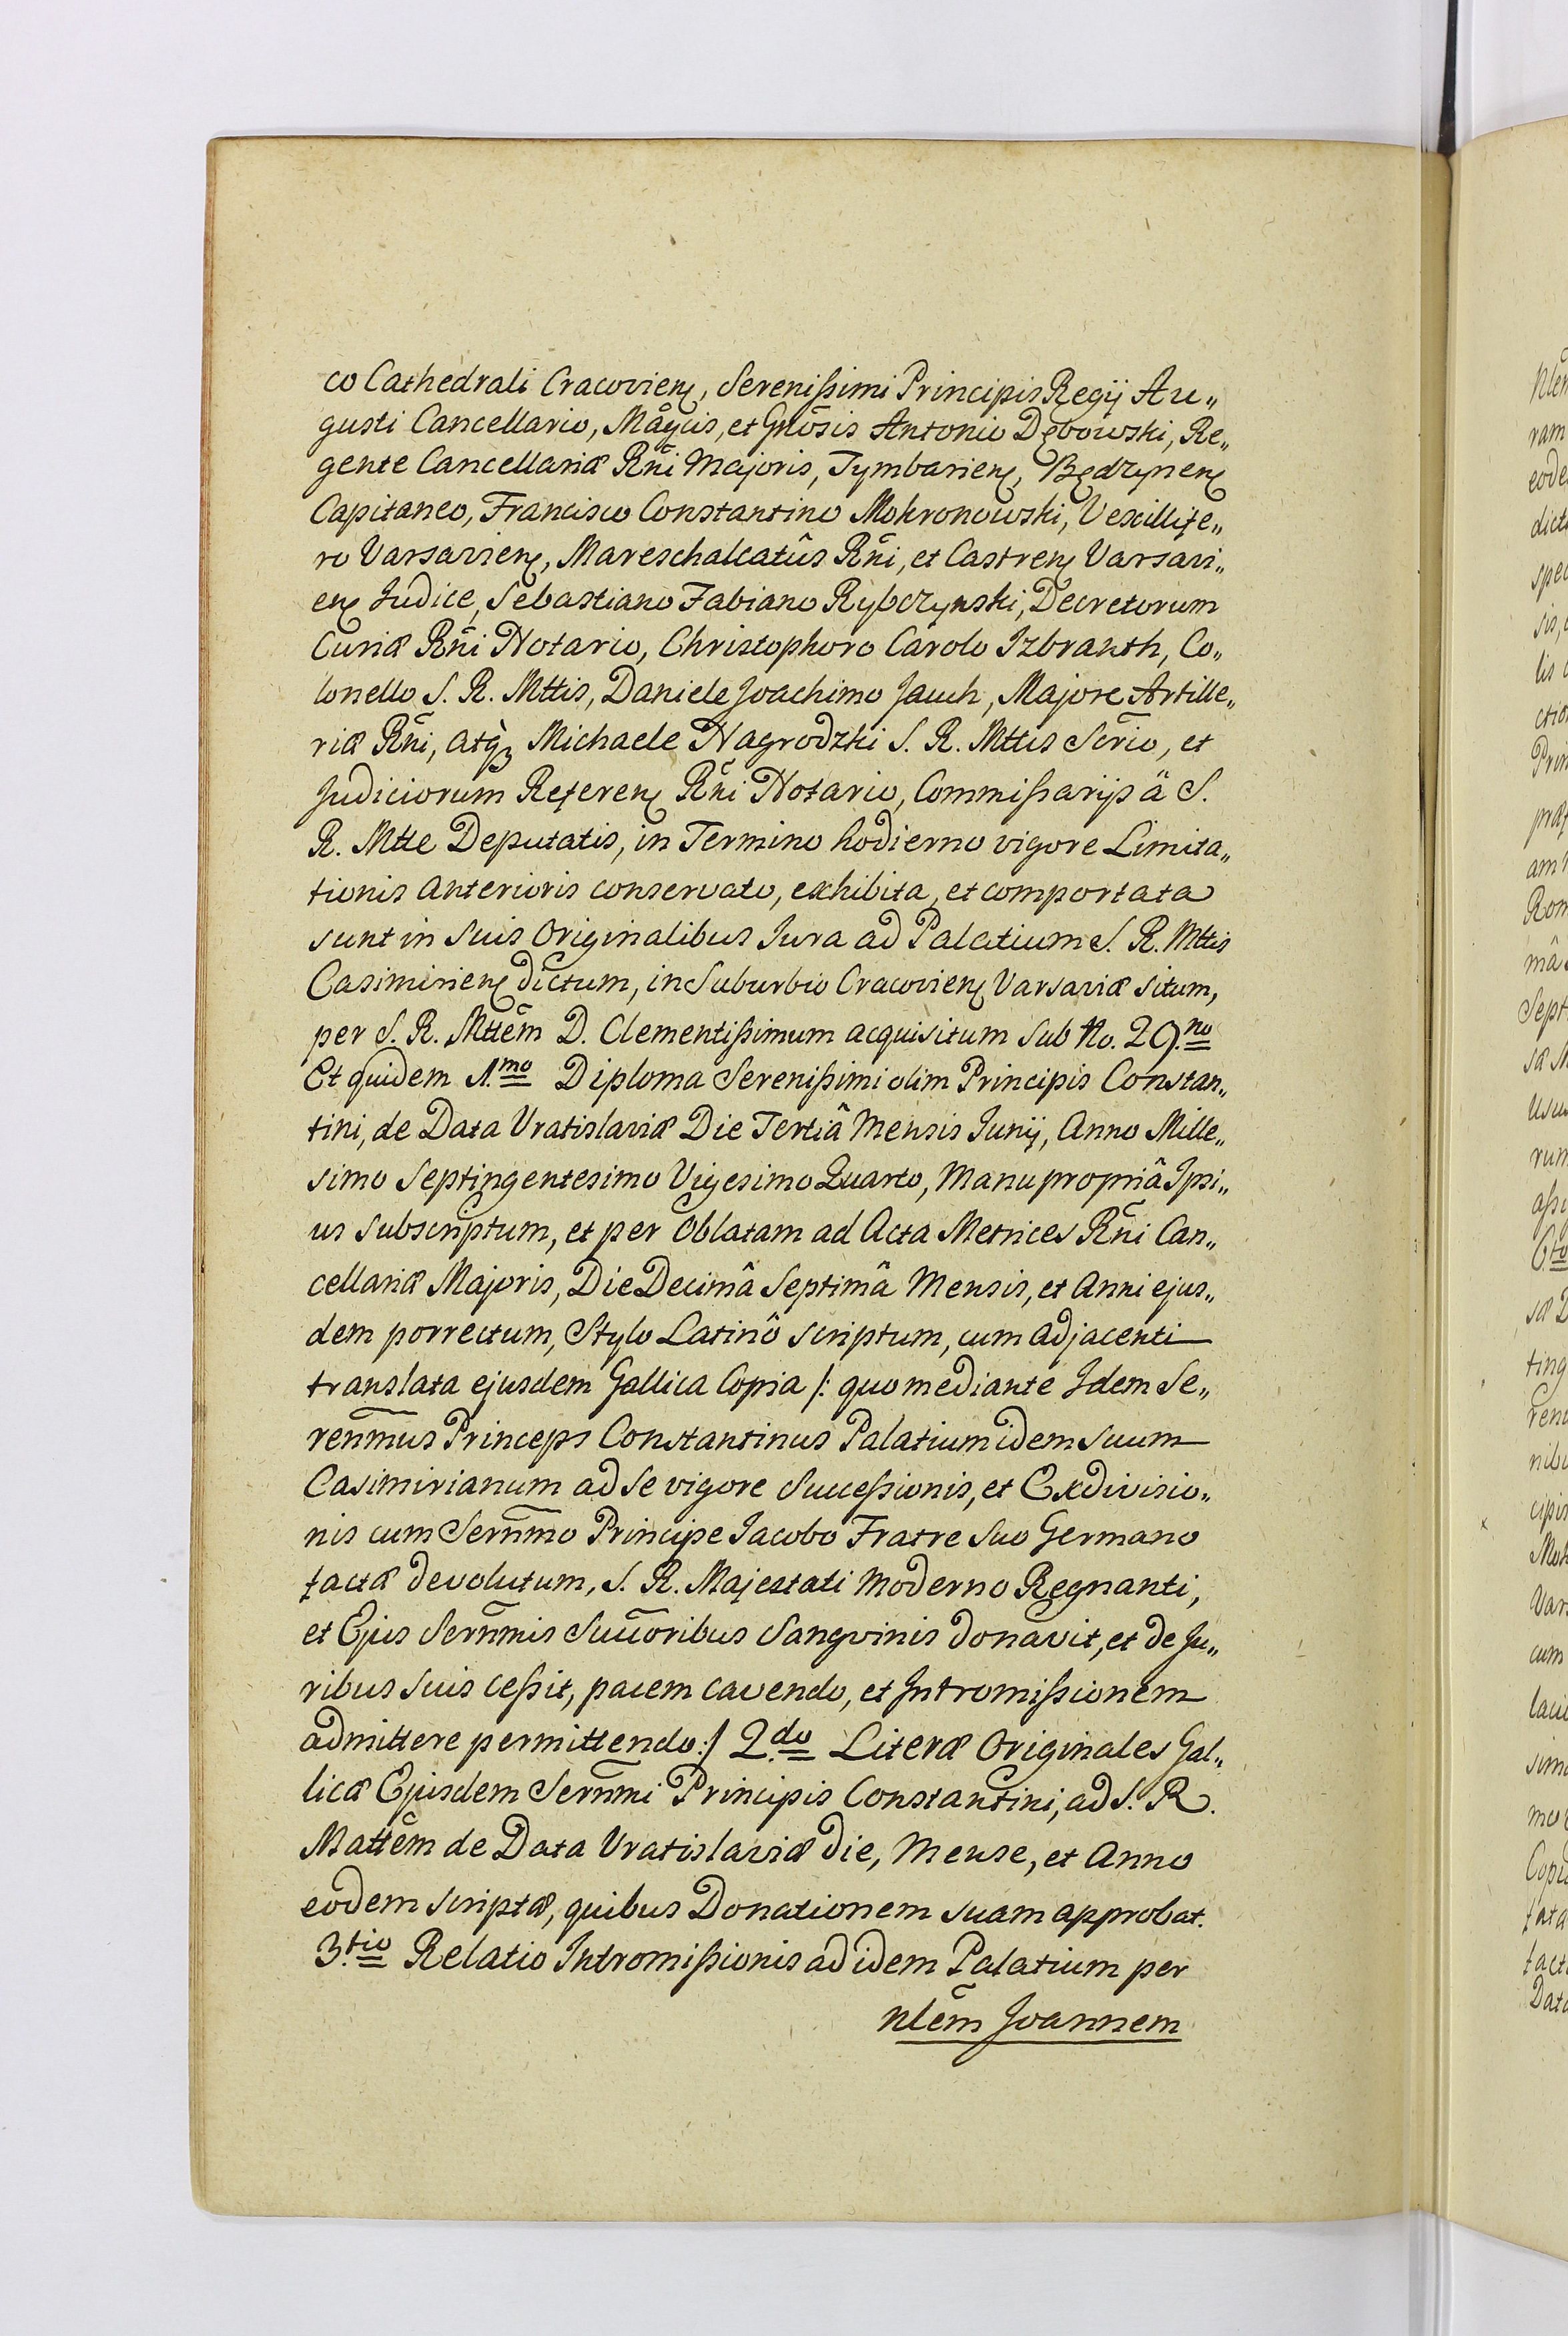 co Cathedrali Cracovien, Serenißimi Principis Regij Au„
gusti Cancellario, Magcis, et Gnosis Antonio Dębowski, Re„
gente Cancellariæ Rni Majoris, Tymbarien, Będzynen
Capitaneo, Francisco Constantino Mokronowski, Vexillife„
ro Varsavien, Mareschalcatûs Rni, et Castren Varsavi„
en Judice, Sebastiano Fabiano Rybczynski, Decretorum
Curiæ Rni Notario, Christophoro Carolo Izbranth, Co„
lonello S. R. Mttis, Daniele Joachimo Jauch, Majore Artille„
riæ Rni, atq̀ꝫ Michaele Nagrodzki S. R. Mttis Scrio, et
Judiciorum Referen Rni Notario, Commißarijs â S.
R. Mtte Deputatis, in Termino hodierno vigore Limita„
tionis anterioris conservato, exhibita, et comportata
sunt in suis Originalibus Iura ad Palatium S. R. Mttis
Casimirien dictum, in Suburbio Cracovien Varsaviæ situm,
per S. R. Mttēm D. Clementißimum acquisitum sub No. 29.no
Et quidem 1.mo Diploma Serenißimi olim Principis Constan„
tini, de Data Vratislaviæ Die Tertiâ Mensis Junij, Anno Mille„
simo Septingentesimo Vigesimo Quarto, Manu propriâ Ipsi„
us subscriptum, et per Oblatam ad Acta Metrices Rni Can„
cellariæ Majoris, Die Decimâ Septimâ Mensis, et Anni ejus„
dem porrectum, Stylo Latinô scriptum, cum adjacenti
translata ejusdem Gallica Copia /: quo mediante Idem Se„
renm̄us Princeps Constantinus Palatium idem suum
Casimirianum ad se vigore Succeßionis, et Exdivisio„
nis cum Sernm̄o Principe Jacobo Fratre suo Germano
factæ devolutum, S. R. Majestati Moderno Regnanti,
et Ejus Sernm̄is Succoribus Sangvinis donavit, et de Ju„
ribus suis ceßit, pacem cavendo, et Intromißionem
admittere permittendo :/ 2.do Literæ Originales Gal„
licæ Ejusdem Sernm̄i Principis Constantini, ad S. R.
Mattēm de Data Vratislaviæ die, Mense, et Anno
eodem scriptæ, quibus Donationem suam approbat.
3.tio Relatio Intromißionis ad idem Palatium per
nlēm Joannem